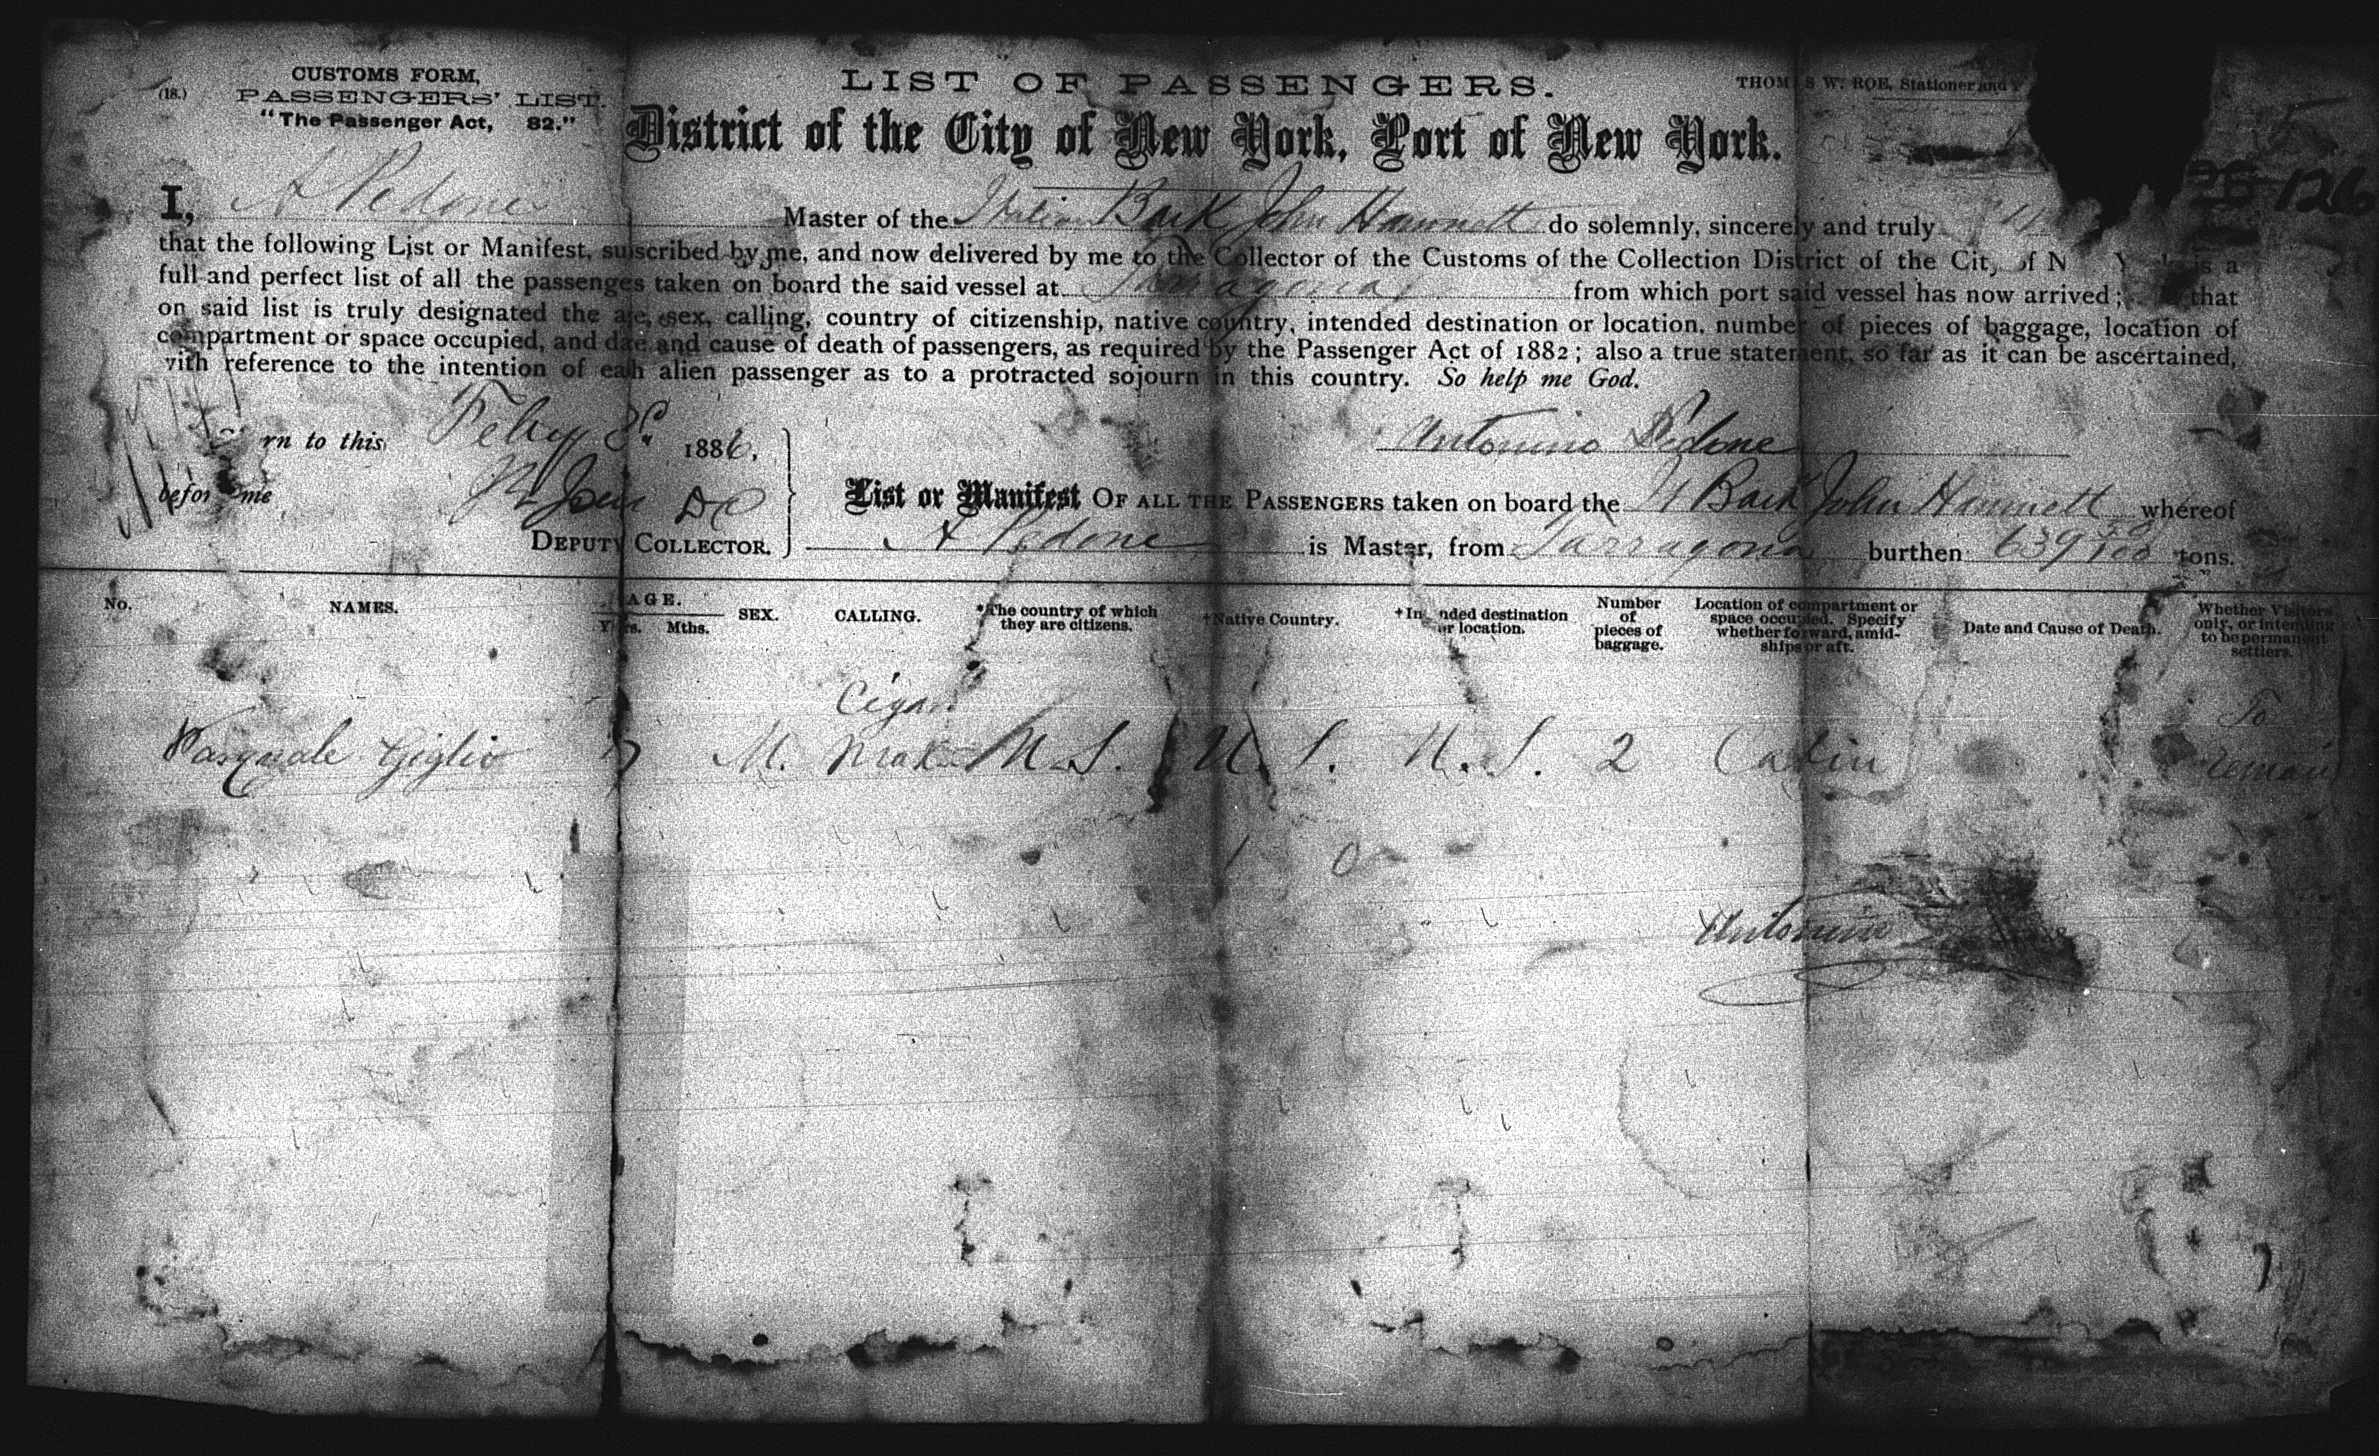 CUSTOMS FORM,
(18.) PASSENGERS' LIST.
"The Passenger Act, 82."
LIST OF PASSENGERS.
THOMAS W. ROE, Stationer and
District of the City of New York, Port of New York.
126
I, A Pedone Master of the Italian Bark John Hammett do solemnly, sincerely and truly
that the following List or Manifest, suscribed by me, and now delivered by me to the Collector of the Customs of the Collection District of the City of N is a
full and perfect list of all the passenges taken on board the said vessel at Tarragona from which port said vessel has now arrived; that
on said list is truly designated the age, sex, calling, country of citizenship, native country, intended destination or location, number of pieces of baggage, location of
compartment or space occupied, and date and cause of death of passengers, as required by the Passenger Act of 1882; also a true statement, so far as it can be ascertained,
with reference to the intention of each alien passenger as to a protracted sojourn in this country. So help me God.
rn to this Feby 3d 1886,
Antonino Pedone
before me
DC
List or Manifest OF ALL THE PASSENGERS taken on board the It Bark John Hammett whereof
DEPUTY COLLECTOR.
A Pedone is Master, from Tarragona burthen 639 50/100 tons.
No. NAMES. AGE. Yrs. Mths. SEX. CALLING. *The country of which they are citizens. †Native Country. †Intended destination or location. Number of pieces of baggage. Location of compartment or space occupied. Specify whether forward, amidships or aft. Date and Cause of Death. Whether Visitors only, or intending to be permanent settlers.
Cigar To
Pasquale Giglio M. Mak U.S. U.S. U.S. 2 Cabin remain
Antonino